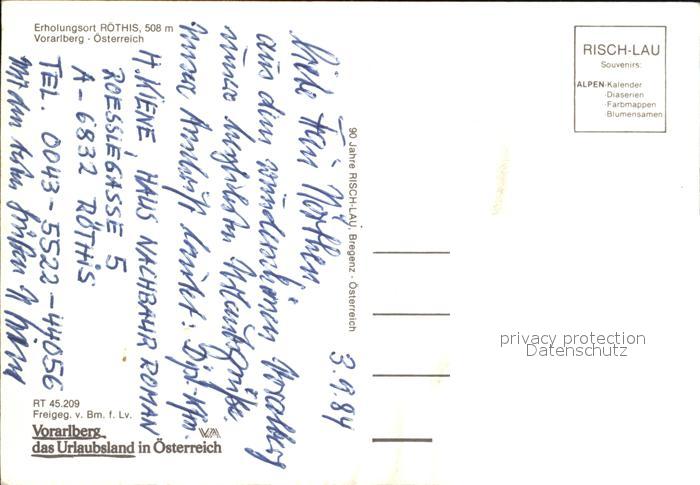 Erholungsort RÖTHIS, 508 m
Vorarlberg - Österreich
RISCH-LAU
Souvenirs:
ALPEN-Kalender
-Diaserien
-Farbmappen
-Blumensamen
90 Jahre RISCH-LAU, Bregenz - Österreich
3.9.84
Liebe Frau
aus dem wunderschönen Vorarlberg
Urlaubsgrüße.
unsere Anschrift lautet: Dipl.-Kfm.
H. KIENE, HAUS NACHBAUR ROMAN
ROESSLEGASSE 5
A-6832 RÖTHIS
TEL. 0043-5522-44056
Mit den Grüßen H. Kiene
RT 45.209
Freigeg. v. Bm. f. Lv.
Vorarlberg
das Urlaubsland in Österreich
privacy protection
Datenschutz